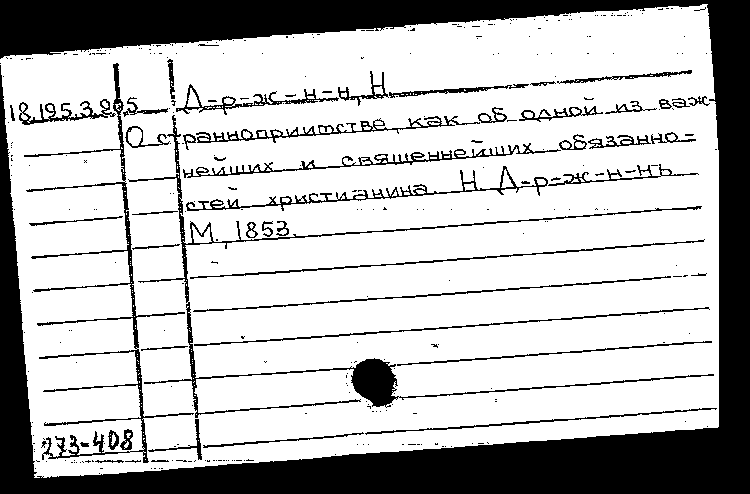 18.195.3.205 Д-р-ж-н-н, Н.
О странноприимстве, как об одной из важ-
нейших и священнейших обязанно-
стей христианина. Н. Д-р-ж-н-нъ
М., 1853.
273-408